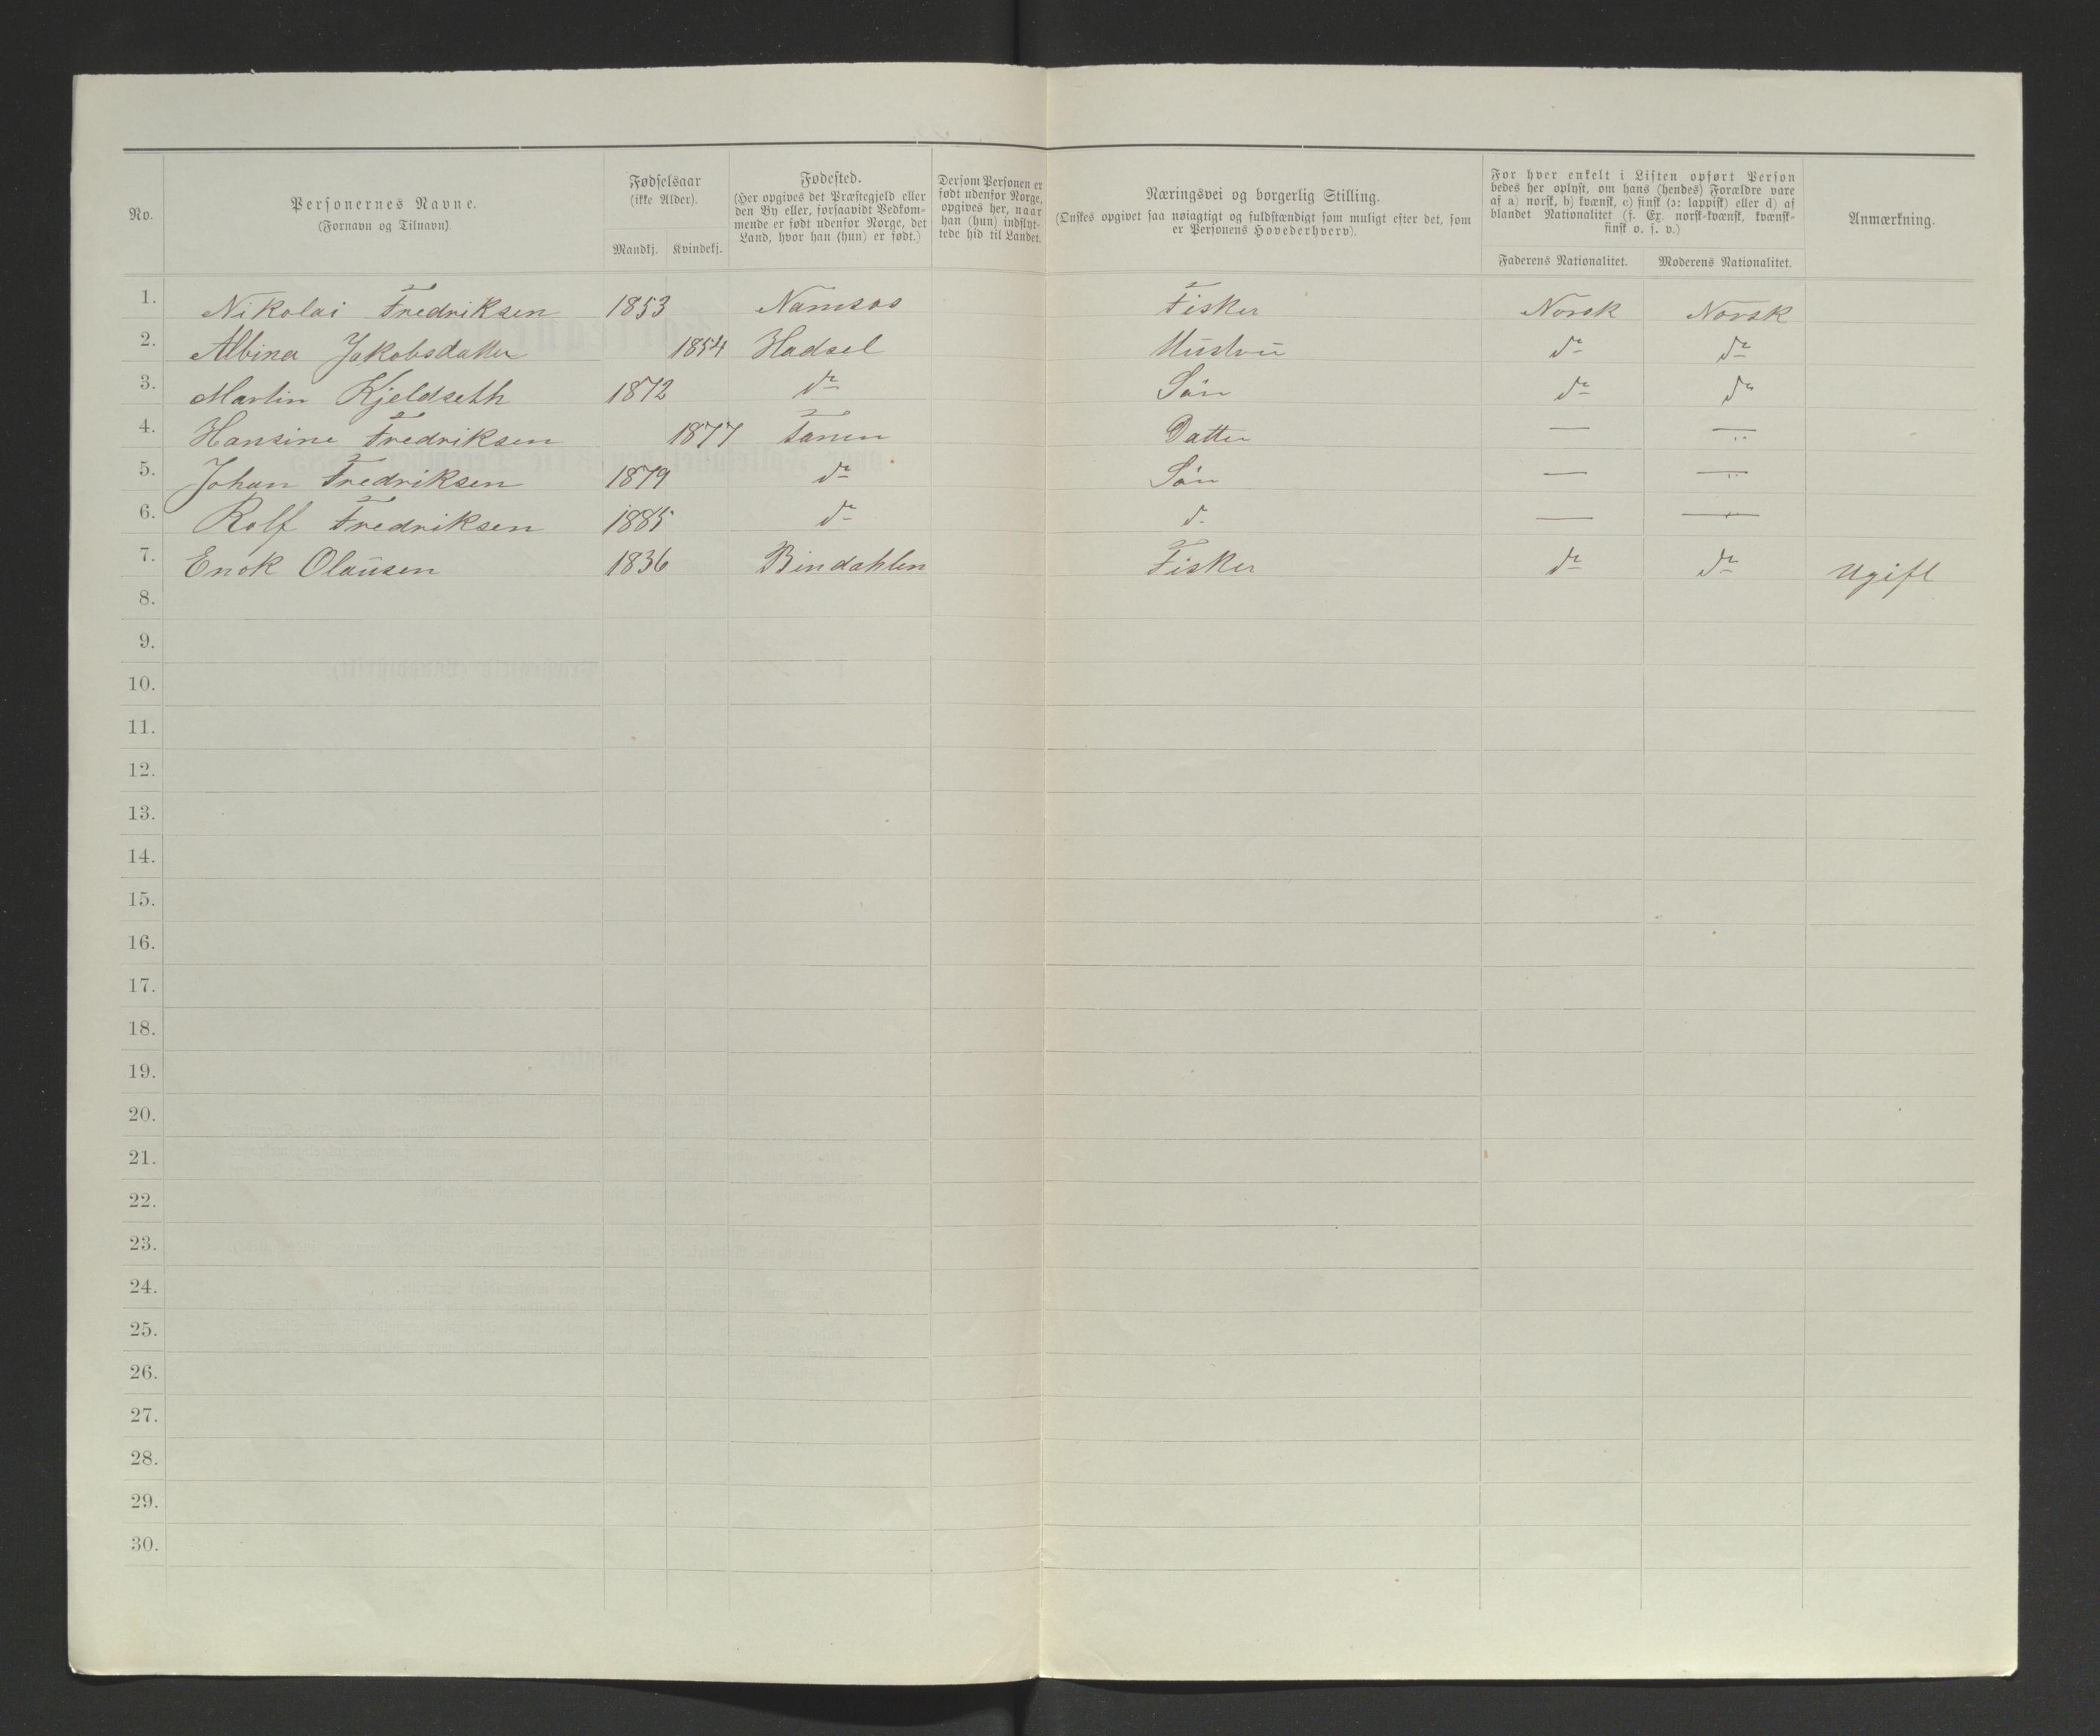 No.
Personernes Navne.
(Fornavn og Tilnavn).
Fødselsaar
(ikke Alder).
Mandkj. Kvindekj.
Fødested.
(Her opgives det Præstegjeld eller
den By eller, forsaavidt Vedkom-
mende er født udenfor Norge, det
Land, hvor han (hun) er født.)
Dersom Personen er
født udenfor Norge,
opgives her, naar
han (hun) indflyt-
tede hid til Landet.
Næringsvei og borgerlig Stilling.
(Ønskes opgivet saa nøiagtigt og fuldstændigt som muligt efter det, som
er Personens Hovederhverv).
For hver enkelt i Listen opført Person
bedes her oplyst, om hans (hendes) Forældre vare
af a) norsk, b) kvænsk, c) finsk (ɔ: lappisk) eller d) af
blandet Nationalitet (f. Ex. norsk-kvænsk, kvænsk-
finsk o. s. v.)
Faderens Nationalitet. Moderens Nationalitet.
Anmærkning.
1. Nikolai Fredriksen 1853 Namsos Fisker Norsk Norsk
2. Albina Jakobsdatter 1854 Hadsel Hustru do do
3. Martin Kjeldseth 1872 do Søn do do
4. Hansine Fredriksen 1877 Tanen Datter — —
5. Johan Fredriksen 1879 do Søn — —
6. Rolf Fredriksen 1885 do d. — —
7. Enok Olausen 1836 Bindahlen Fisker do do Ugift
8.
9.
10.
11.
12.
13.
14.
15.
16.
17.
18.
19.
20.
21.
22.
23.
24.
25.
26.
27.
28.
29.
30.